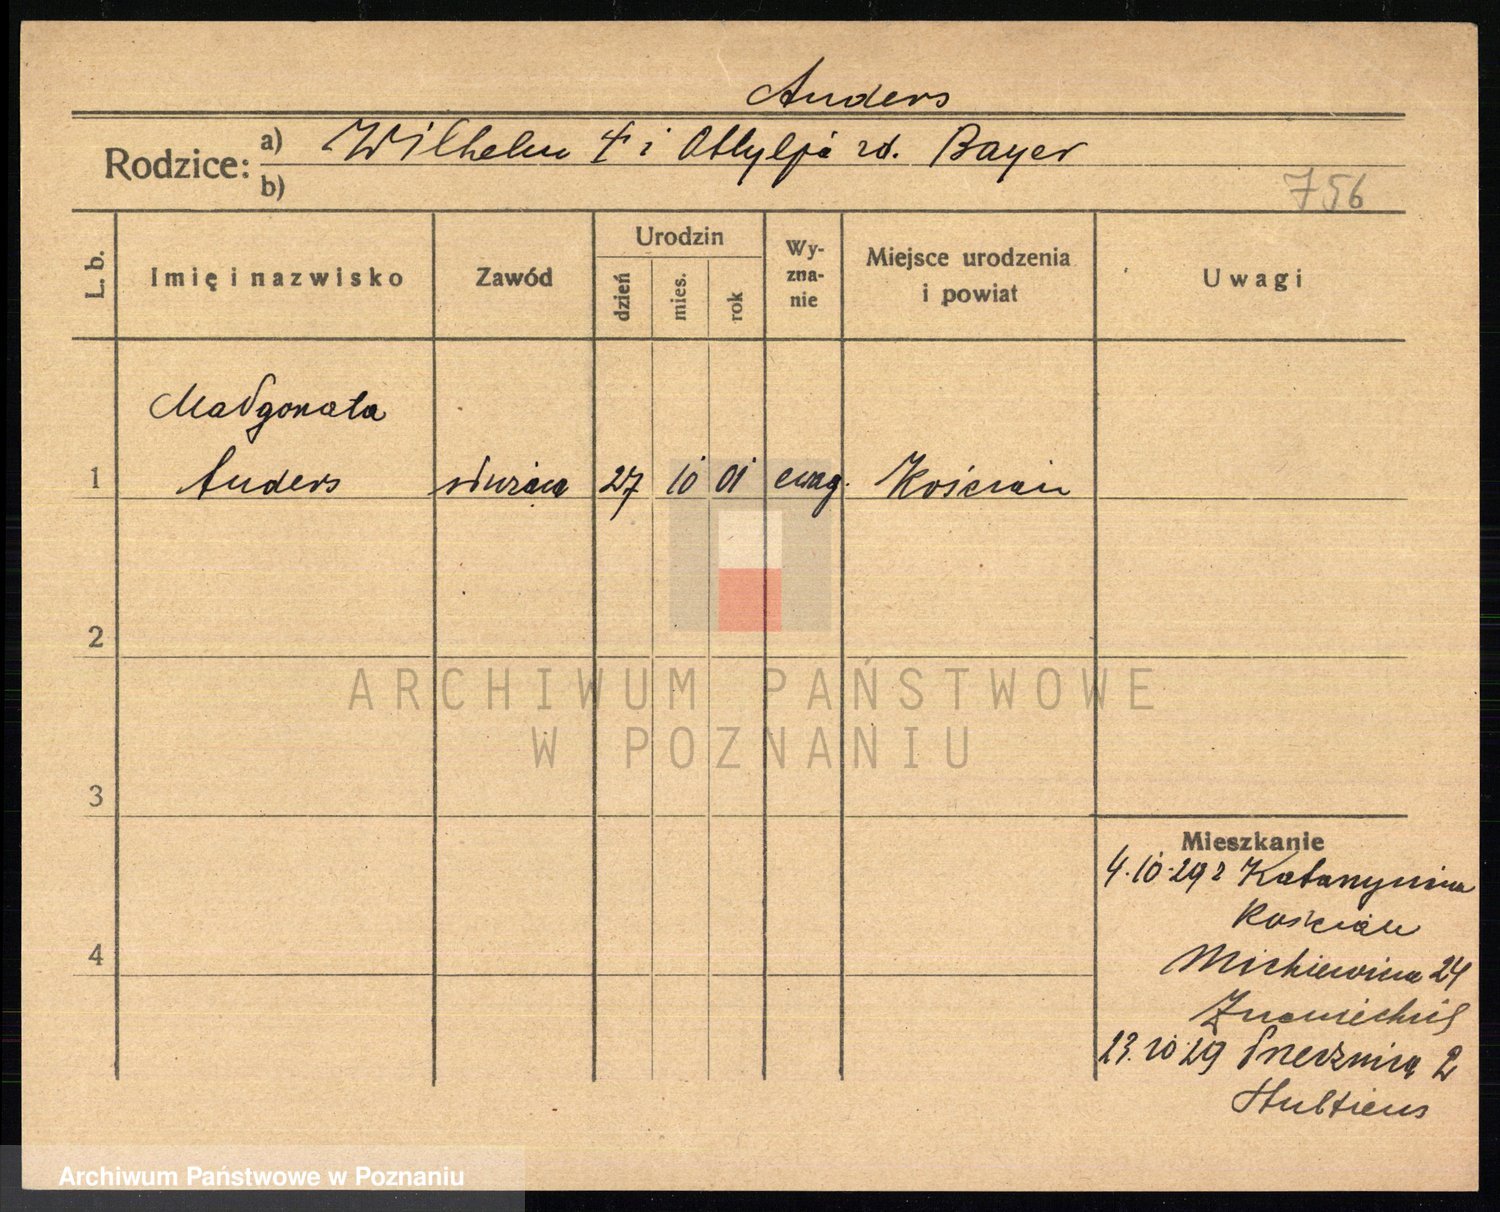 Anders
Rodzice: a) Wilhelm † i Ottylja rd. Bayer
b)
756
L. b. Imię i nazwisko Zawód Urodzin dzień mies. rok Wy-zna-nie Miejsce urodzenia i powiat Uwagi
Małgorzata
1 Anders służąca 27 10 01 ewag. Kościan
2
ARCHIWUM PAŃSTWOWE
W POZNANIU
3
Mieszkanie
4.10.29 z Katarzynina
Kościan
4
Mickiewicza 24
23.10.29 2
Archiwum Państwowe w Poznaniu